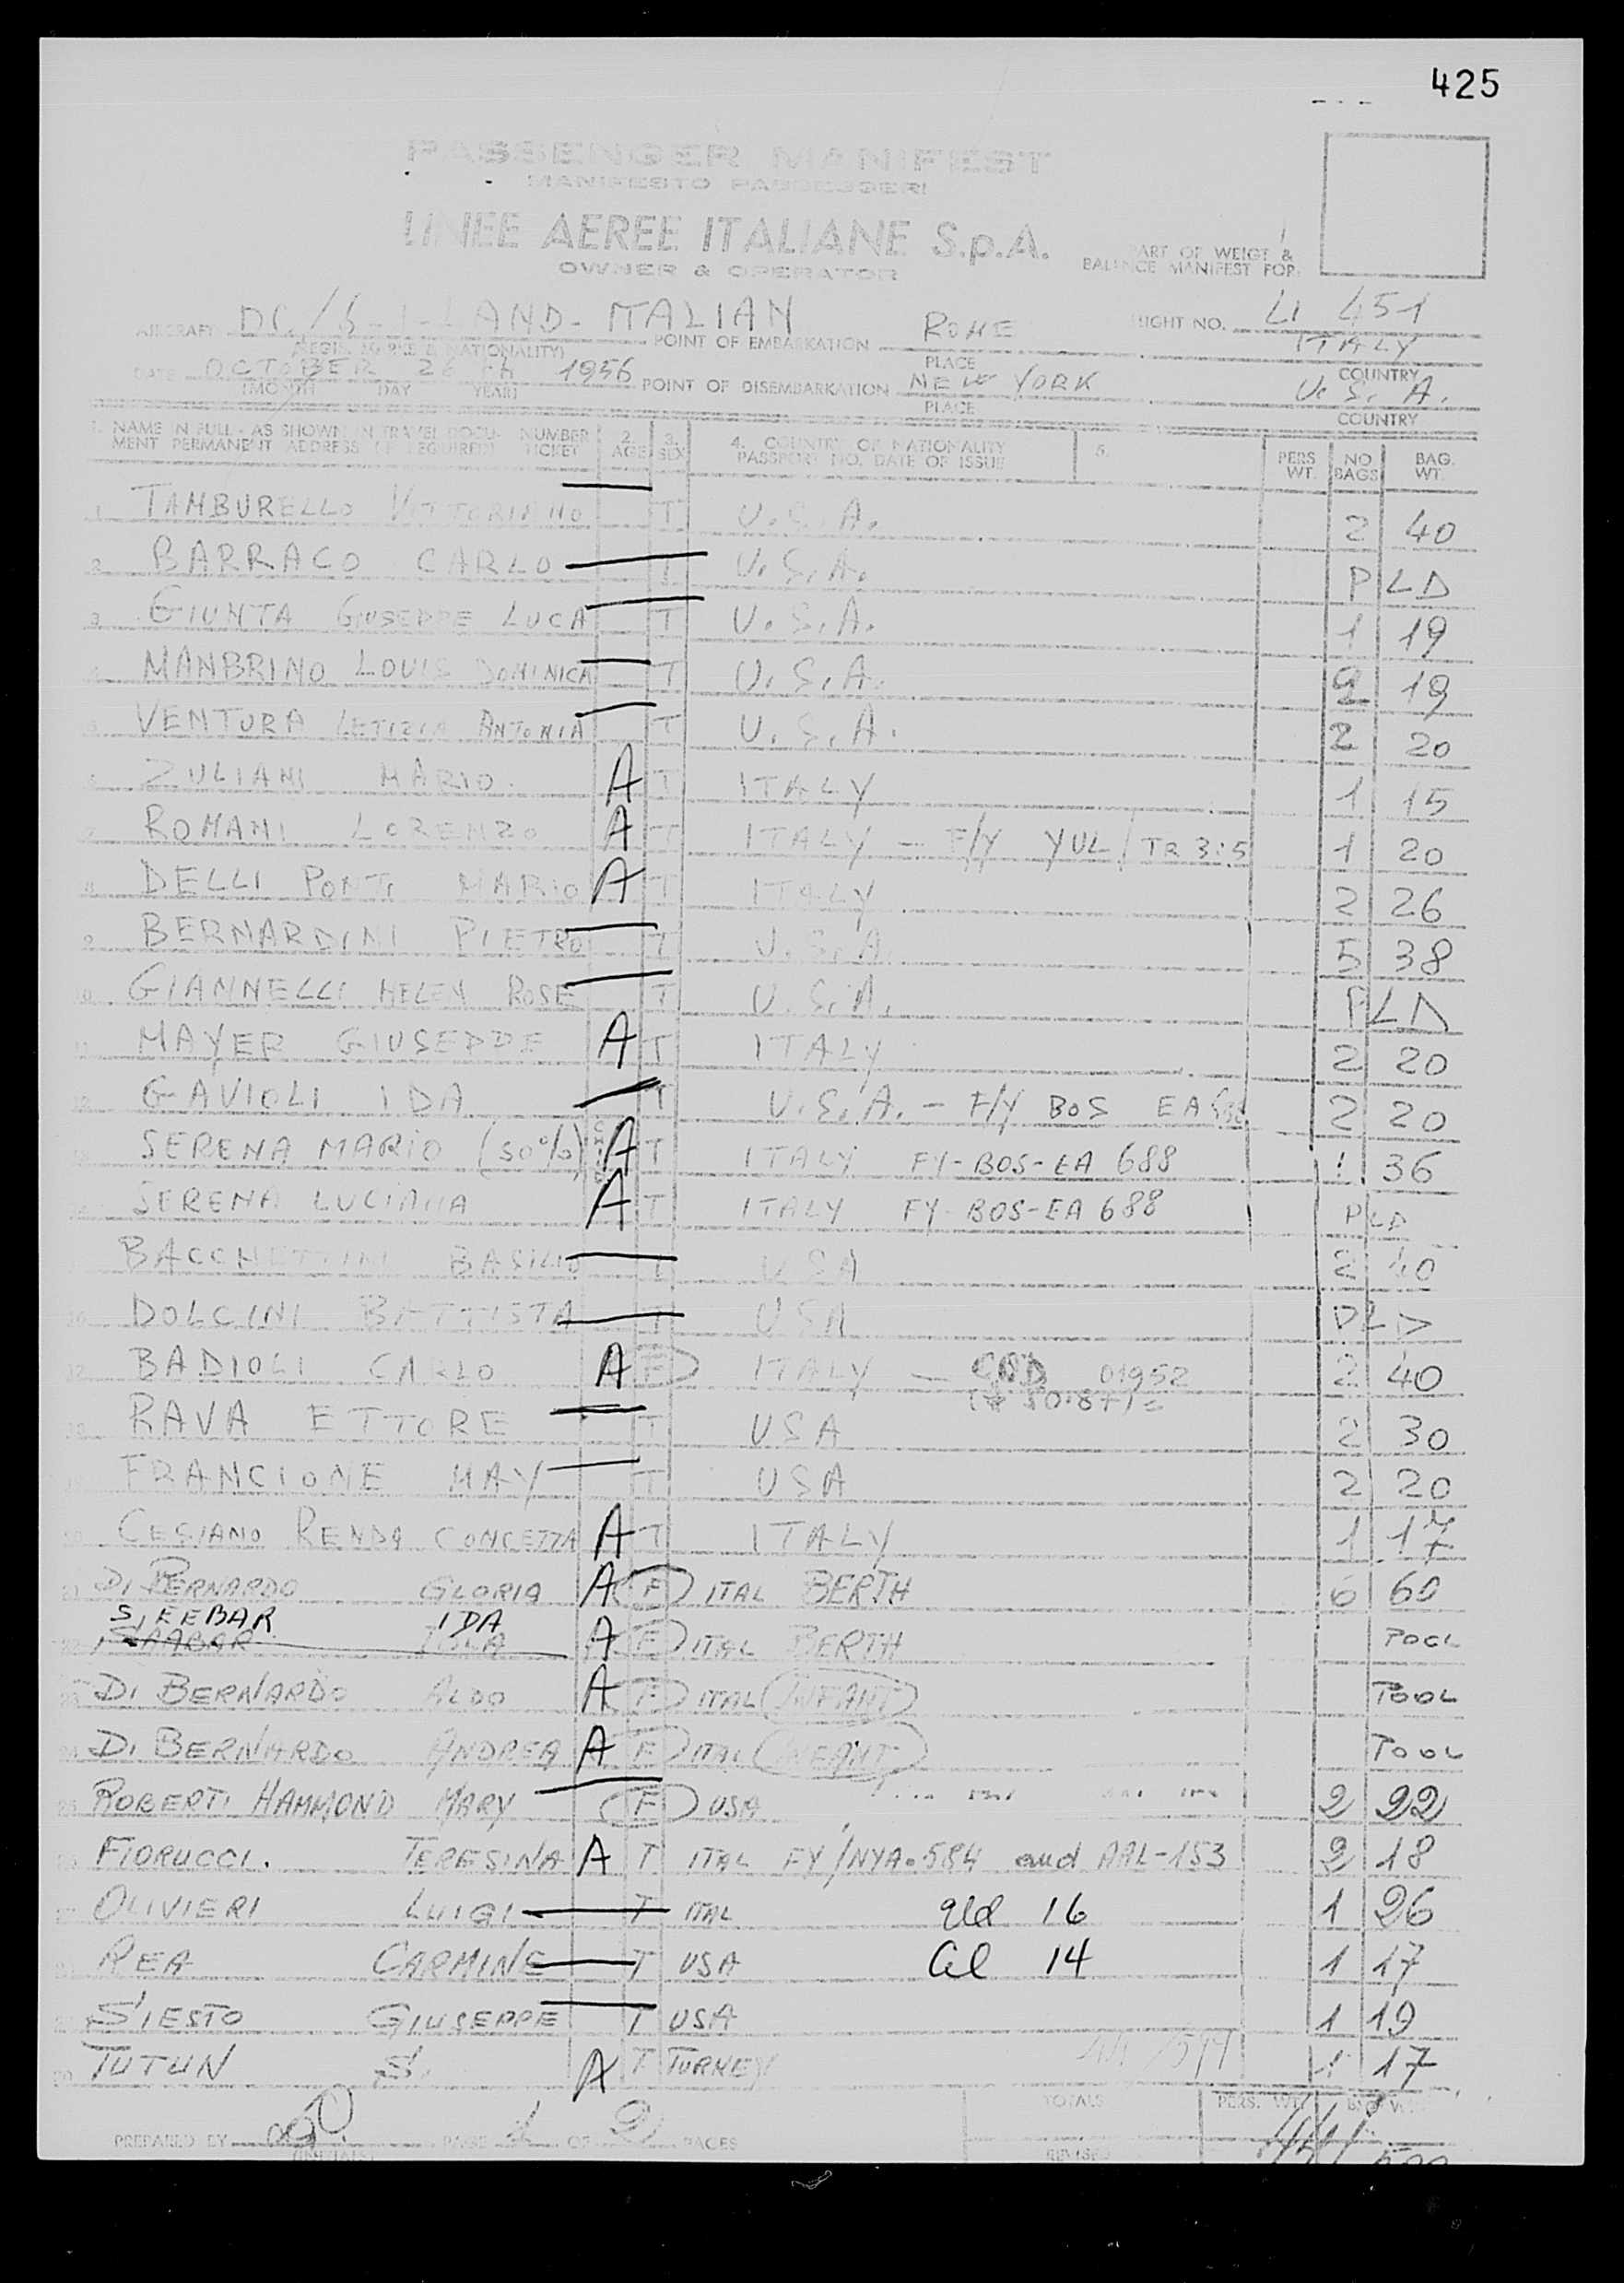 425
PASSENGER MANIFEST
MANIFESTO PASSEGGERI
LINEE AEREE ITALIANE S.p.A.
OWNER & OPERATOR
PART OF WEIGT &
BALANCE MANIFEST FOR
AIRCRAFT DC/6 - I-LAND - ITALIAN POINT OF EMBARKATION ROME FLIGHT NO. LI 451
ITALY
(REGIS. MARKS & NATIONALITY) PLACE COUNTRY
DATE OCTOBER 26 TH 1956 POINT OF DISEMBARKATION NEW YORK U.S.A.
(MONTH DAY YEAR) PLACE COUNTRY
1. NAME IN FULL - AS SHOWN IN TRAVEL DOCU- NUMBER 2. 3. 4. COUNTRY OF NATIONALITY 5. PERS NO BAG.
MENT PERMANENT ADDRESS (IF REQUIRED) TICKET AGE SEX PASSPORT NO. DATE OF ISSUE WT. BAGS WT.
1 TAMBURELLO VITTORIANO T U.S.A. 2 40
2 BARRACO CARLO T U.S.A. PLD
3 GIUNTA GIUSEPPE LUCA T U.S.A. 1 19
4 MANBRINO LOUIS DOMINICA T U.S.A. 2 19
5 VENTURA LETIZIA ANTONIA T U.S.A. 2 20
6 ZULIANI MARIO A T ITALY 1 15
7 ROMANI LORENZO A T ITALY - F/Y YUL / TR 3:5 1 20
8 DELLI PONTI MARIO A T ITALY 2 26
9 BERNARDINI PIETRO T U.S.A. 5 38
10 GIANNELLI HELEN ROSE T U.S.A. PLD
11 MAYER GIUSEPPE A T ITALY 2 20
12 GAVIOLI IDA T U.S.A. - F/Y BOS EA 2 20
13 SERENA MARIO (50%) A T ITALY FY-BOS-EA 688 1 36
14 SERENA LUCIANA A T ITALY FY-BOS-EA 688 PLD
BACCHETTINI BASILIO T USA 2 40
16 DOLCINI BATTISTA T USA PLD
17 BADIOLI CARLO A F ITALY - 01952 2 40
18 RAVA ETTORE T USA 2 30
19 FRANCIONE MAY T USA 2 20
20 CESIANO RENDA CONCETTA A T ITALY 1 17
21 DI BERNARDO GLORIA A F ITAL BERTH 6 60
SIEEBAR IDA
22 A F ITAL BERTH POOL
23 DI BERNARDO ALDO A F ITAL INFANT POOL
24 DI BERNARDO ANDREA A F ITAL INFANT POOL
25 ROBERTI HAMMOND MARY F USA 2 22
26 FIORUCCI. TERESINA A T ITAL FY/NYA.584 and AAL-153 2 18
27 OLIVIERI LUIGI T ITAL 16 1 26
28 REA CARMINE T USA 14 1 17
29 SIESTO GIUSEPPE T USA 1 19
30 TUTUN S. A T TURKEY 1 17
PREPARED BY PAGE 1 OF 2 PAGES TOTALS PERS. WT.
(INITIALS) REVISED